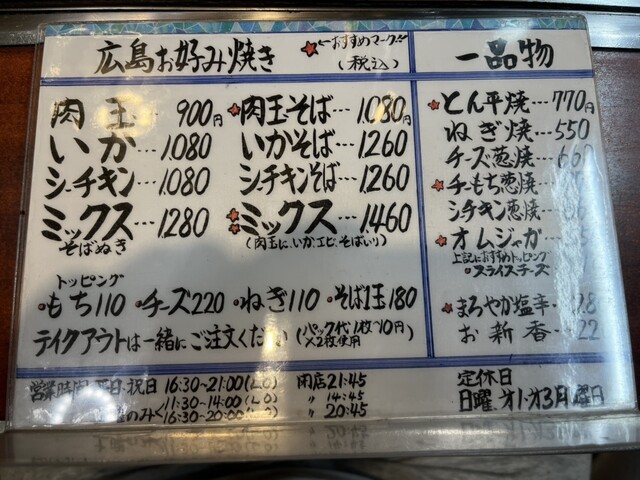 広島お好み焼き ★←おすすめマーク!! (税込)
肉玉…900円
いか…1.080
シーチキン…1.080
ミックス…1280
そばぬき
★肉玉そば…1.080円
いかそば…1.260
シチキンそば…1.260
★ミックス…1.460
(肉玉に、いか、エビ、そば入り)
トッピング
・もち110 ・チーズ220 ・ねぎ110 ・そば1玉180
テイクアウトは一緒にご注文ください (パック代1枚〜10円 ×2枚使用)
一品物
★とん平焼…770円
ねぎ焼…550
チーズ葱焼…660
★チーもち葱焼
シチキン葱焼
★オムジャガ
上記におすすめトッピング
・スライスチーズ
★まろやか塩辛
お新香
営業時間 ・祝日 16:30~21:00(L.O) 閉店21:45
11:30~14:00(L.O) 〃 14:45
のみ 16:30~20:00(L.O) 〃 20:45
定休日
日曜、オ1・オ3月曜日